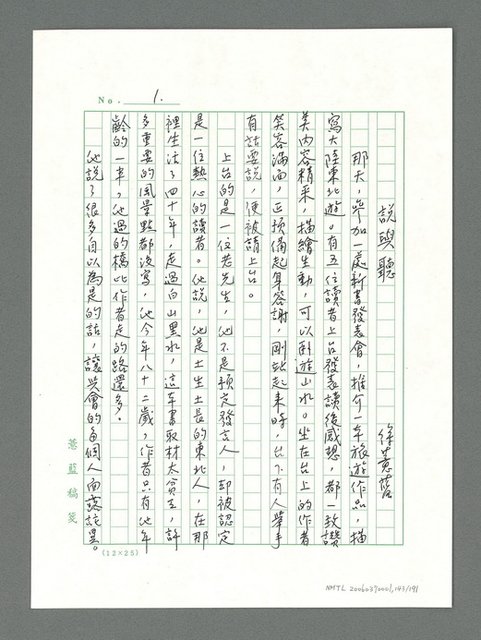 No. 1.
說與聽
徐薏藍
那天，參加一處新書發表會，推介一本旅遊作品，描
寫大陸東北遊。有五位讀者上台發表讀後感想，都一致讚
美內容精采，描繪生動，可以臥遊山水。坐在台上的作者
笑容滿面，正預備起身答謝，剛站起來時，台下有人舉手
有話要說，便被請上台。
上台的是一位老先生，他不是預定發言人，却被認定
是一位熱心的讀者。他說，他是土生土長的東北人，在那
裡生活了四十年，走過白山黑水，這本書取材太貧乏，許
多重要的風景點都沒寫，他今年八十二歲，作者只有他年
齡的一半，他過的橋比作者走的路還多。
他說了很多自以為是的話，讓與會的每個人面露詫異。
薏藍稿箋
(12×25)
NMTL 20060370001,143/191